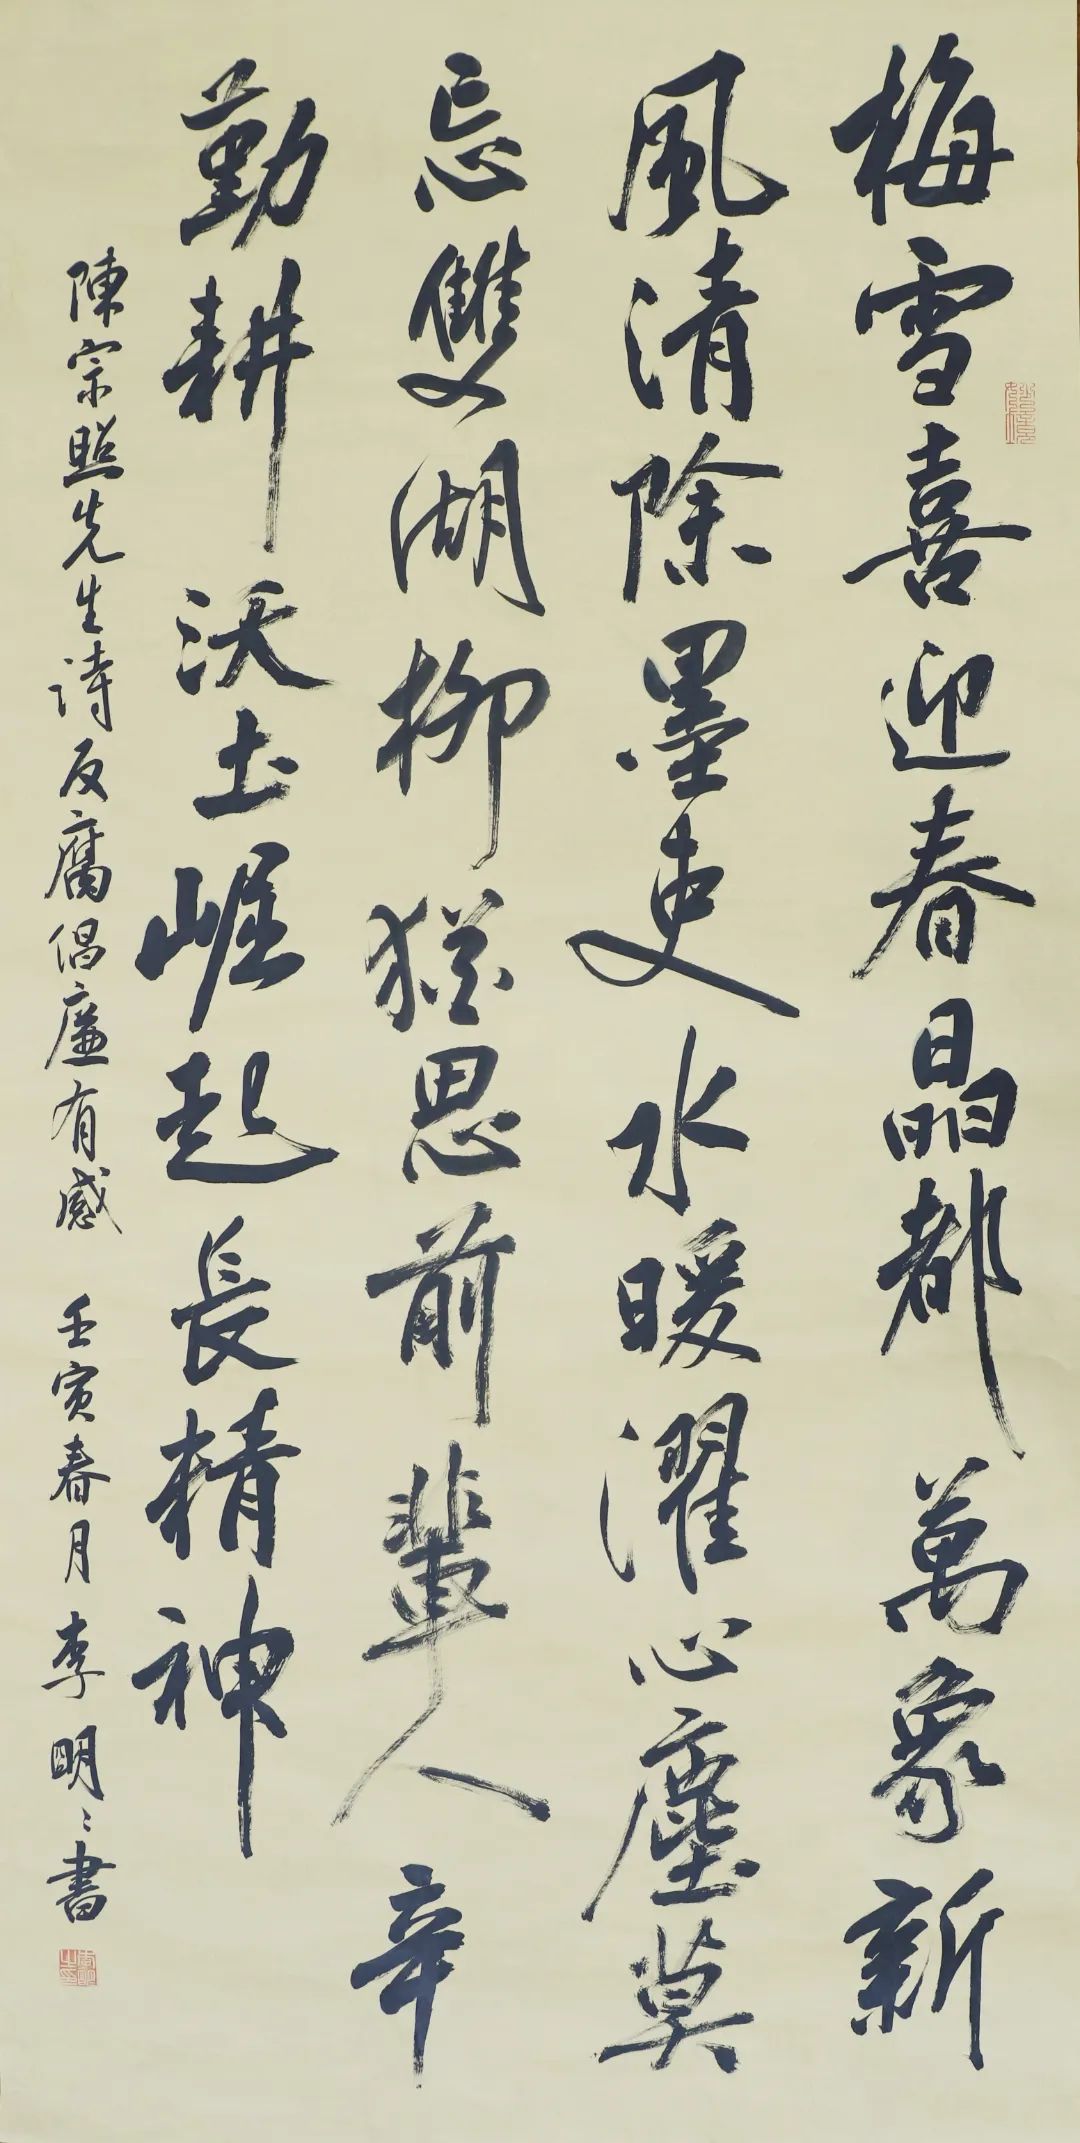 梅雪喜迎春晶都萬象新
風清除墨吏水暖濯心塵莫
忘雙湖柳猶思前輩人辛
勤耕沃土崛起長精神
陳宗照先生詩反腐倡廉有感 壬寅春月李明々書